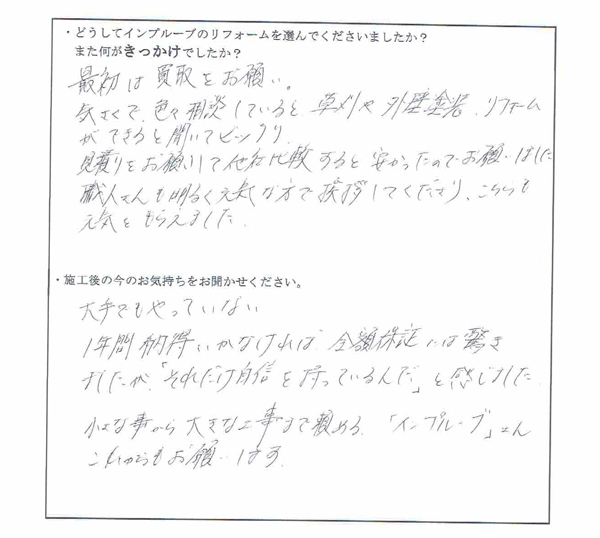 ・どうしてインプルーブのリフォームを選んでくださいましたか？
また何がきっかけでしたか？
最初は買取をお願い。
気さくで、色々相談していると、草刈や外壁塗装、リフォーム
ができると聞いてビックリ
見積りをお願いして他社比較すると安かったのでお願いしました
職人さんも明るく元気な方で挨拶してくださり、こちらも
元気をもらえました。
・施工後の今のお気持ちをお聞かせください。
大手でもやっていない
1年間納得いかなければ、全額保証には驚き
ましたが、「それだけ自信を持っているんだ」と感じました
小さな事から大きな工事まで頼める、「インプルーブ」さん
これからもお願いします。